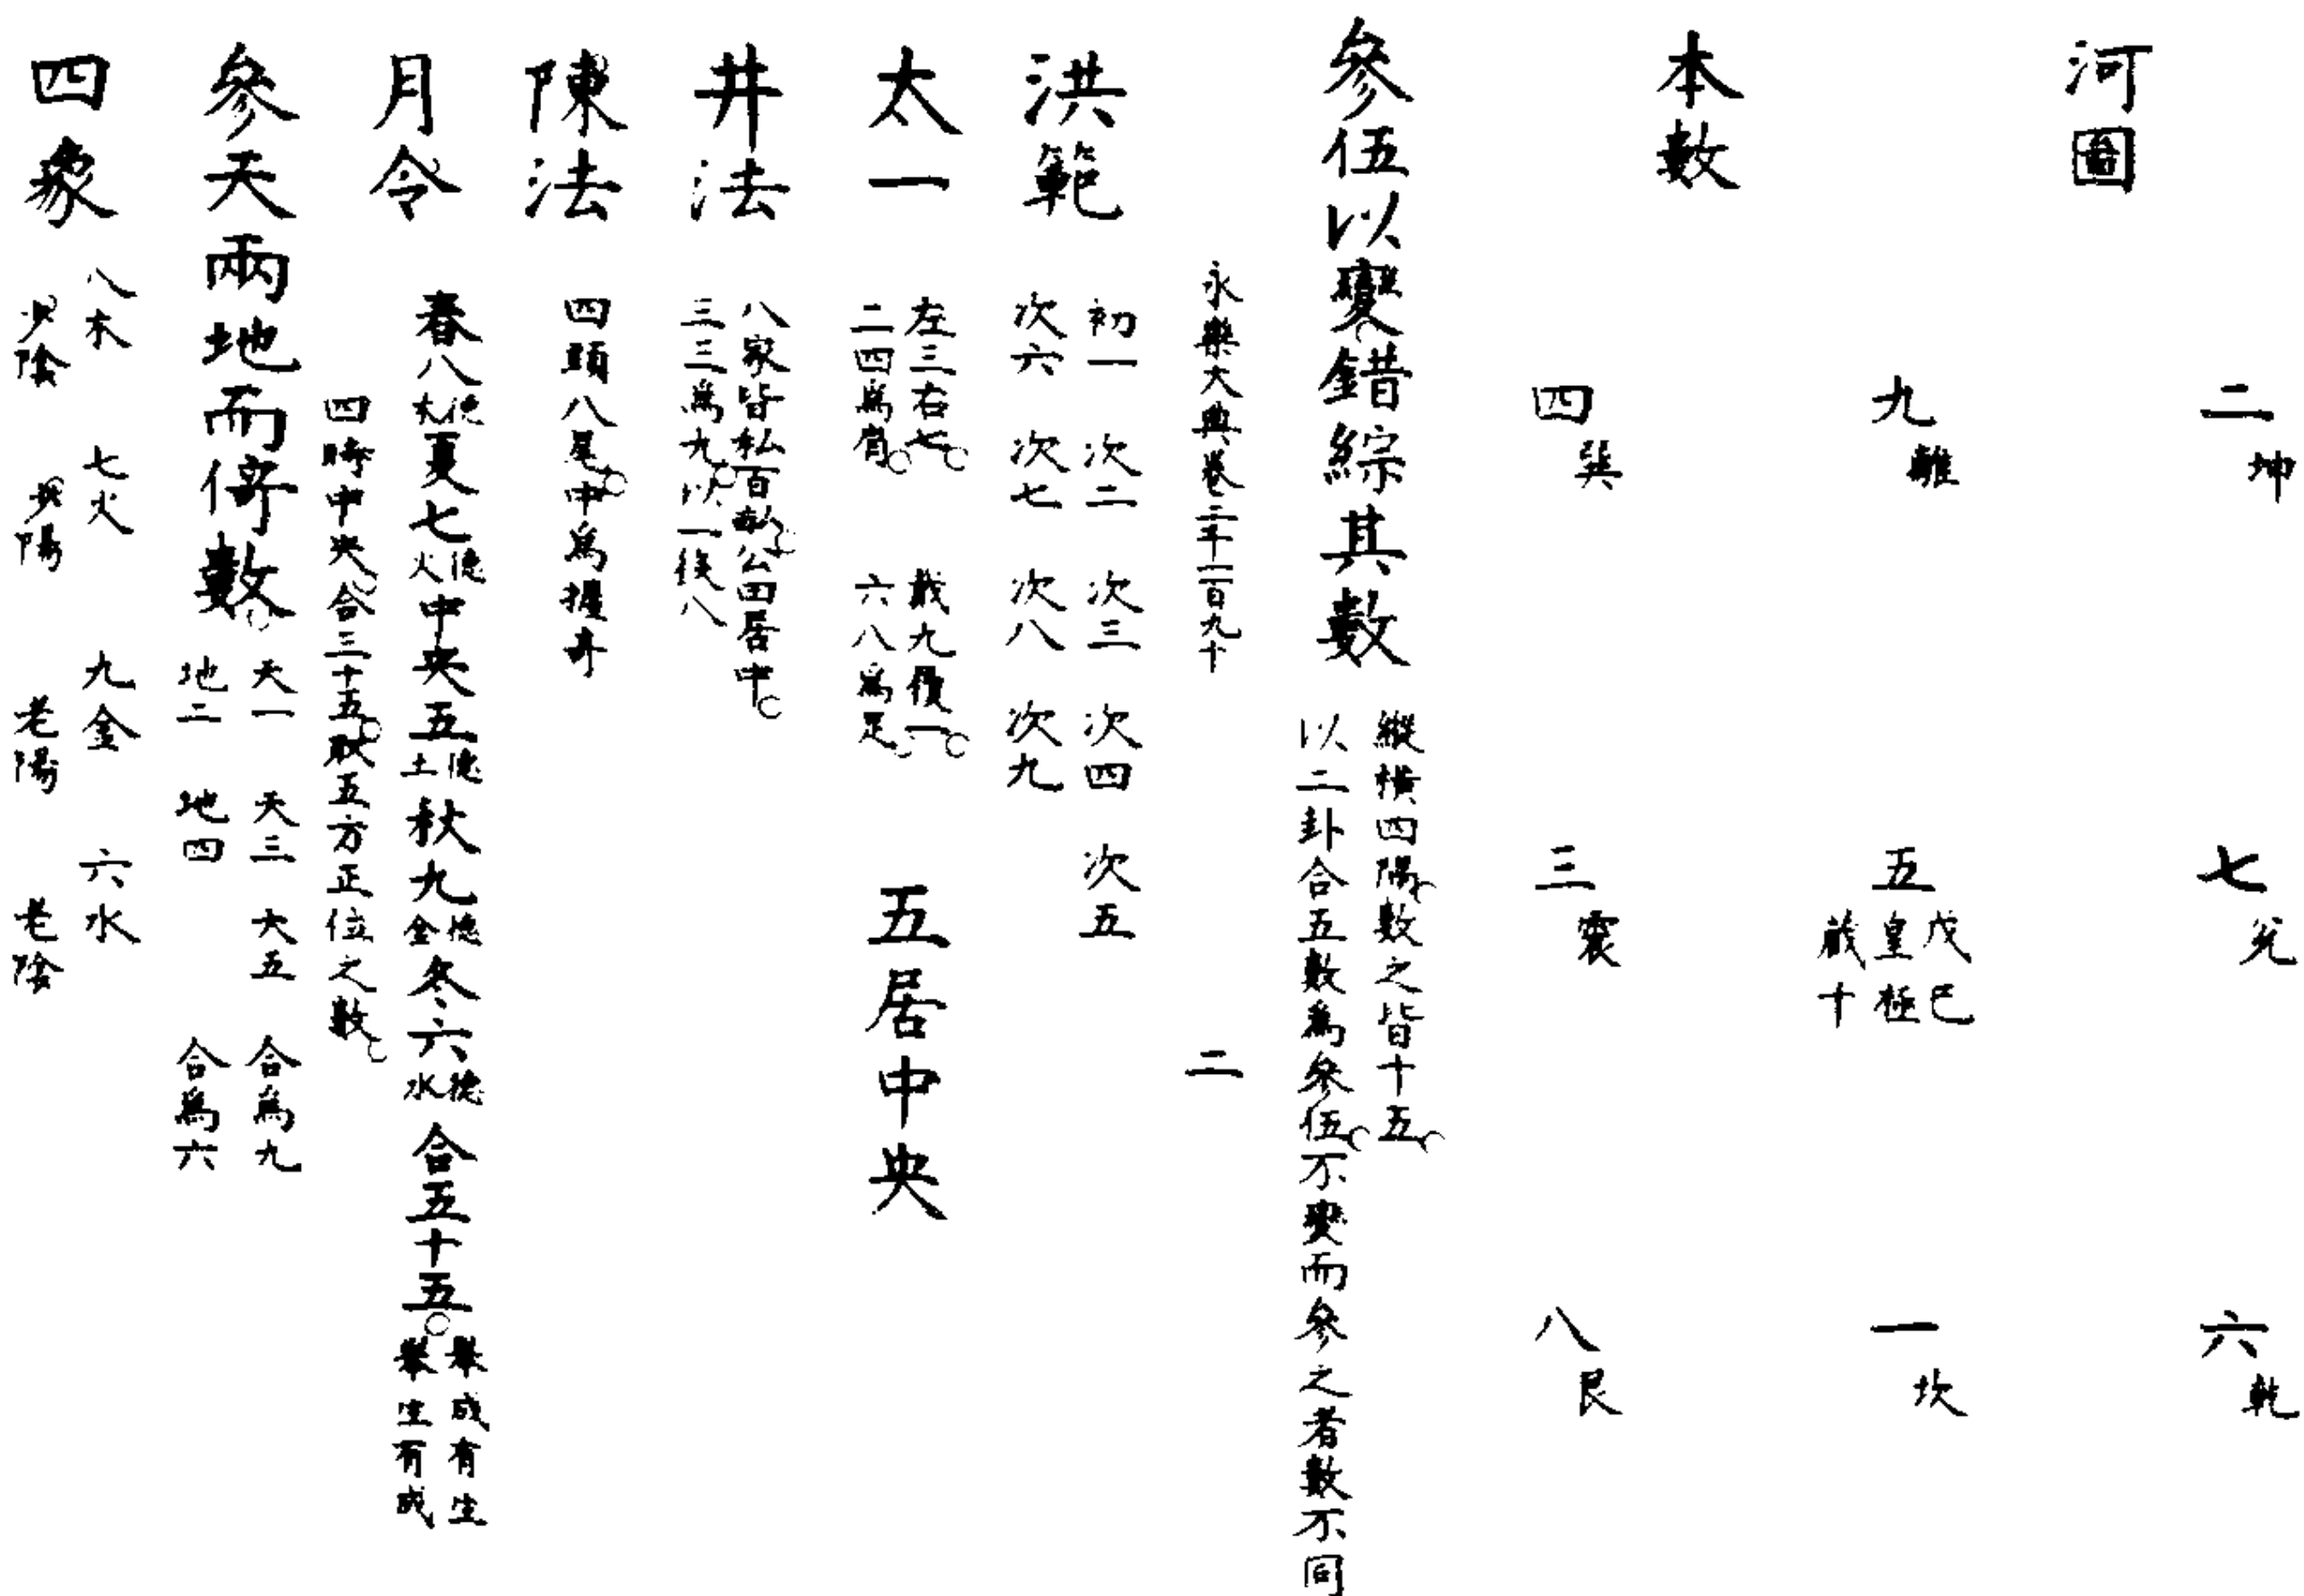 河圖
二坤 七兌 六乾
本數
九離 五戊己皇極藏十 一坎
四巽 三震 八艮
參伍以變錯綜其數 縱橫四隅數之皆十五
以二卦合五數為參伍不變而參之者數不同
永樂大典卷二千二百九十 二
洪範 初一 次二 次三 次四 次五
次六 次七 次八 次九
太一 左三右七 戴九履一
二四為肩 六八為足
五居中央
井法 八家皆私百畝公田居中
三三為九以一後八
陳法 四頭八尾中為握奇
月令 春八木德夏七火德中央五土德秋九金德冬六水德合五十五舉成有生舉生有成
四時中央合三十五散五方正位之數
參天兩地而倚數 天一 天三 大五 合為九
地二 地四 合為六
四象 八木 七火 九金 六水
少陰 少陽 老陽 老陰